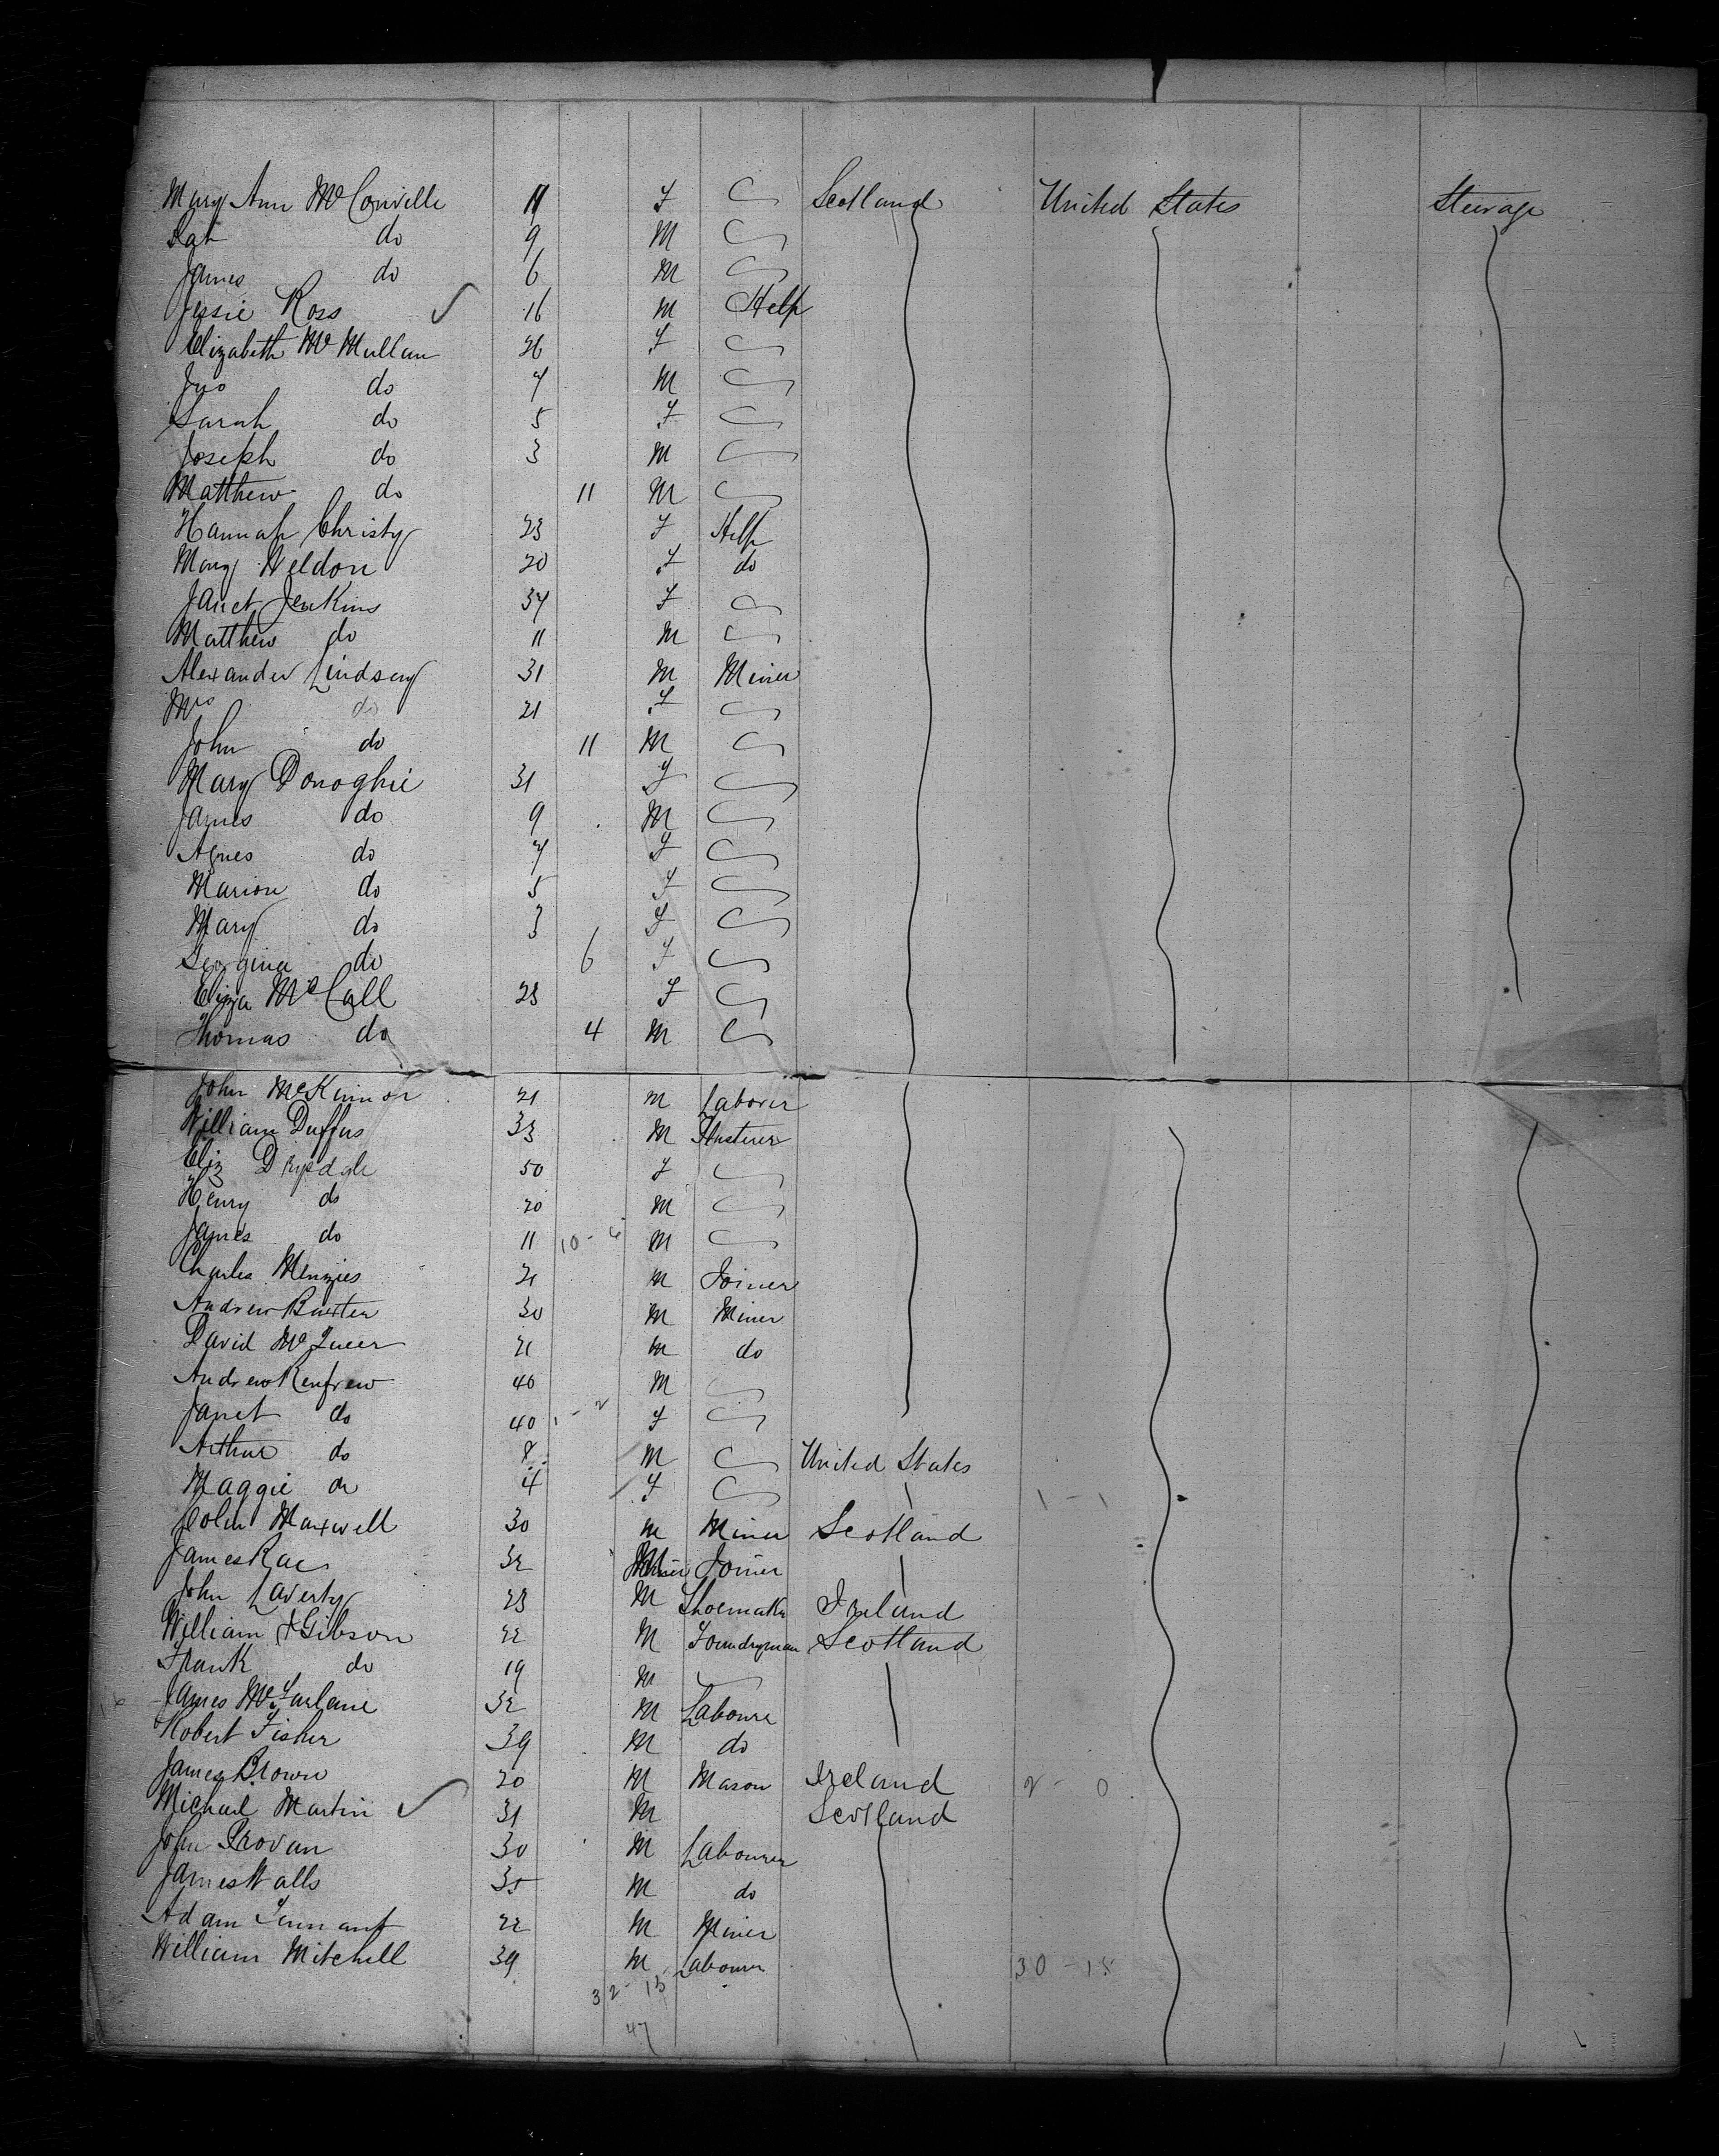 Mary Ann McConville 11 F Scotland United States Steerage
Pat do 9 M
James do 6 M
Jessie Ross 16 M Help
Elizabeth McMullan 26 F
Jno do 7 M
Sarah do 5 F
Joseph do 3 M
Matthew do 11 M
Hannah Christy 23 F Help
Mary Weldon 20 F do
Janet Jenkins 37 F
Matthew do 11 M
Alexander Lindsay 31 M Miner
Mrs do 21 F
John do 11 M
Mary Donoghie 31 F
James do 9 M
Agnes do 7 F
Marion do 5 F
Mary do 3 F
Georgina do 6 F
Eliza McCall 28 F
Thomas do 4 M
John McKinnon 21 M Laborer
William Duffus 33 M
Eliz Drysdale 50 F
Henry do 20 M
James do 11 10 - 6 M
Charles Menzies 21 M Joiner
Andrew Baxter 30 M Miner
David McQueer 21 M do
Andrew Renfrew 40 M
Janet do 40 1 - 2 F
Arthur do M United States
Maggie do 4 F 1 - 1
Colin Maxwell 30 M Miner Scotland
James Rae 32 M Joiner
John Laverty 28 M Shoemaker Ireland
William Gibson 22 M Foundryman Scotland
Frank do 19 M
James McFarlane 32 M Laboure
Robert Fisher 39 M do
James Brown 20 M Mason Ireland 2 - 0
Michael Martin 31 M Scotland
John Provan 30 M Labourer
James Walls 35 M do
Adam Tennant 22 M Miner
William Mitchell 39 M Labourer 30 - 15
32 - 15
47